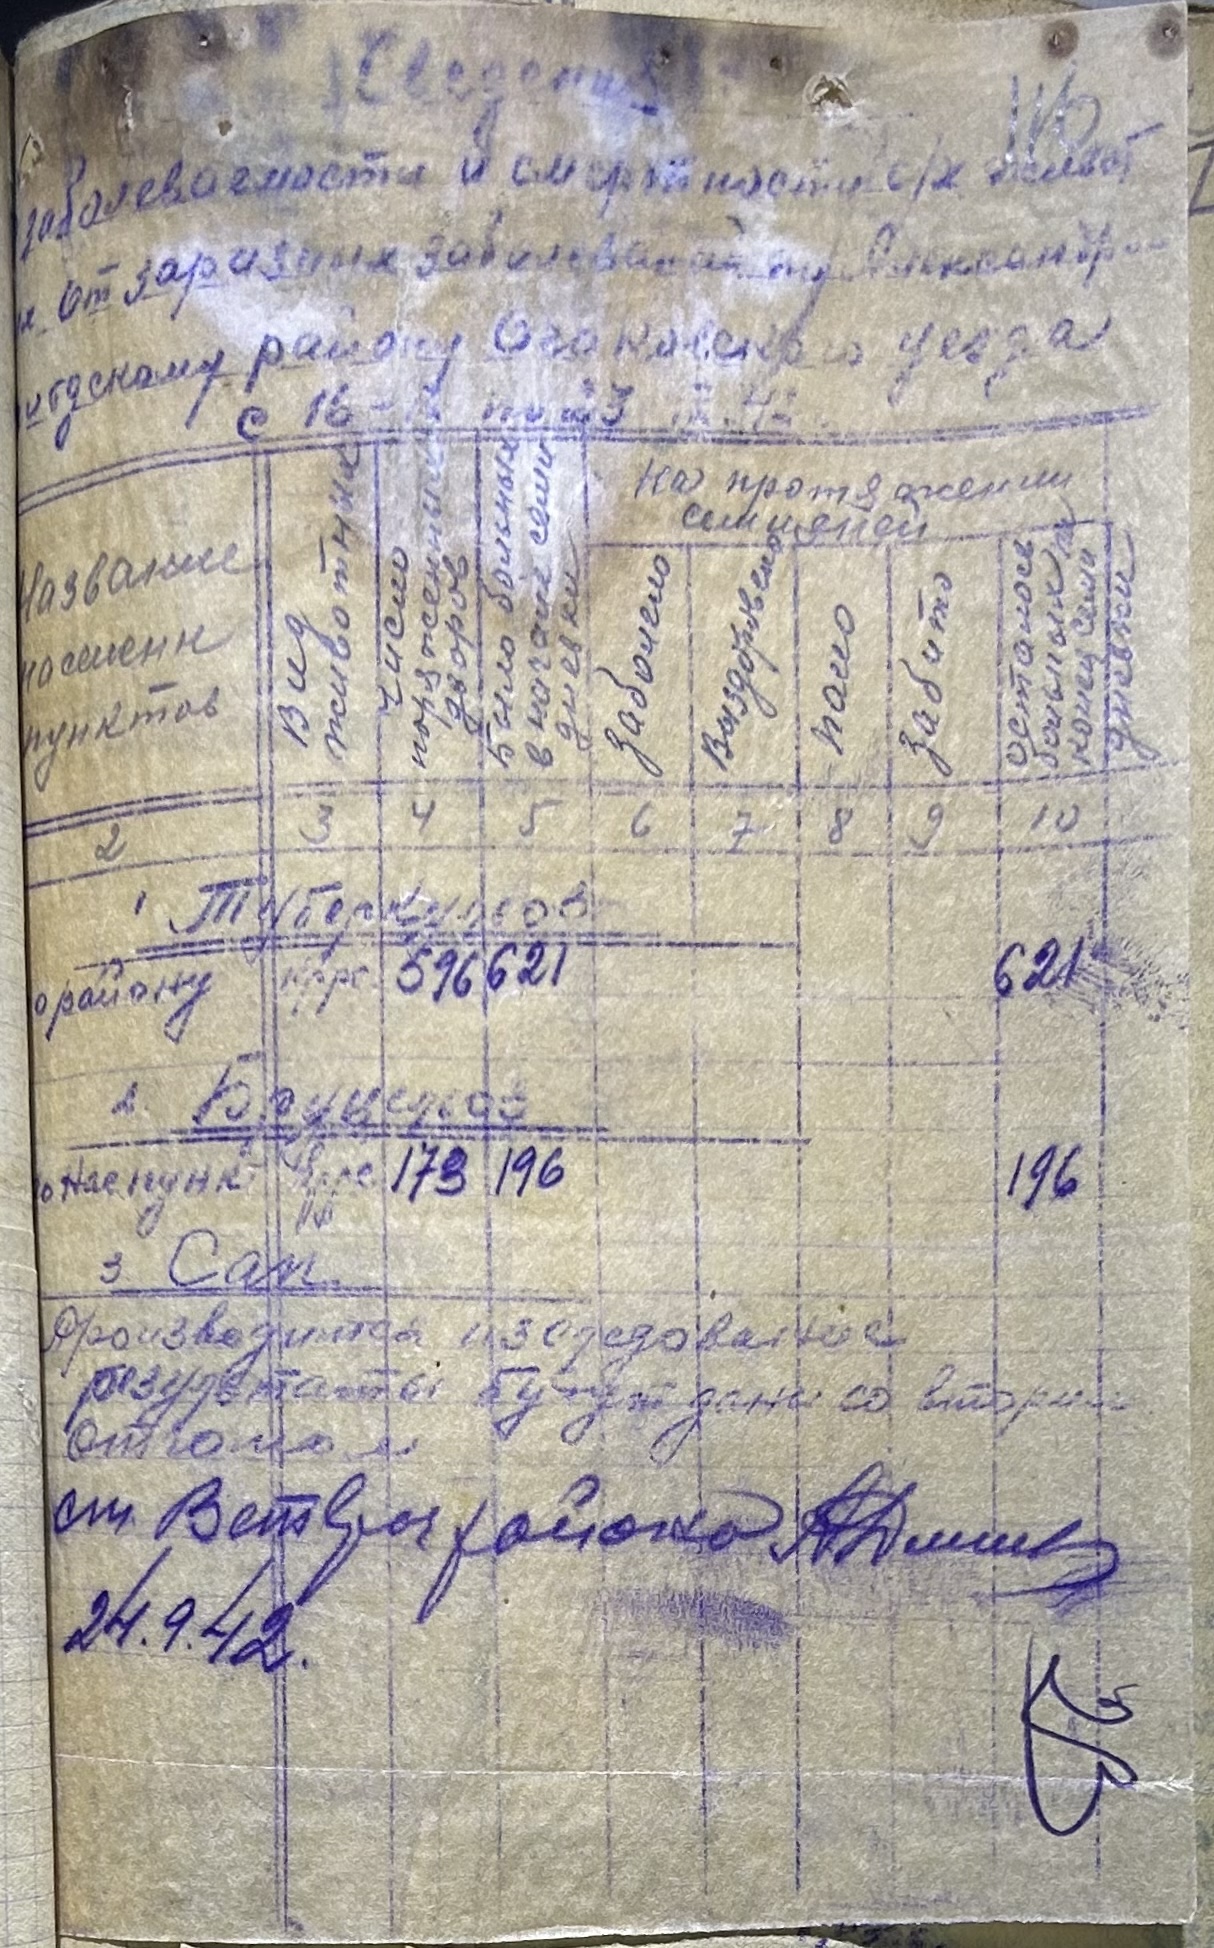 Сведения
заболеваемости и смертности с/х живот
х от заразных заболеваний по Александр
тдскому району Очаковского уезда
с 16 по 23
Название
населенн
пунктов
Вид
животных
Число
пораженных
дворов
Было больных
в начале семи
дневки
На протяжении
семидней
Заболело
Выздоровело
Пало
Забито
Осталось
больных
конец семи
дневки
2 3 4 5 6 7 8 9 10
1 Туберкульоз
о району крс 596 621 621
2. Бруцульоз
о нас пунк крс 173 196 196
3 Сап
Производится изследование
результаты будут дани со вторим
отчотом
ст. Ветврач района
24.9.42.